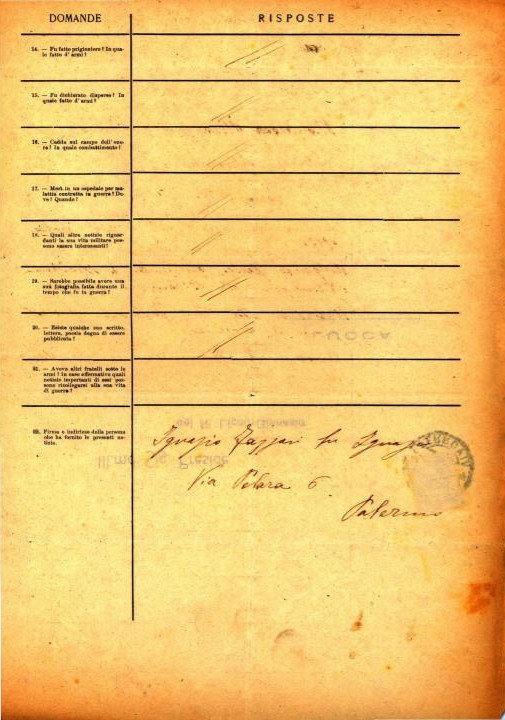 DOMANDE
RISPOSTE
14. — Fu fatto prigioniero? In qua-
le fatto d'armi?
15. — Fu dichiarato disperso? In
quale fatto d'armi?
16. — Cadde sul campo dell'ono-
re? In quale combattimento?
17. — Morì in un ospedale per ma-
lattia contratta in guerra? Do-
ve? Quando?
18. — Quali altre notizie riguar-
danti la sua vita militare pos-
sono essere interessanti?
19. — Sarebbe possibile avere una
sua fotografia fatta durante il
tempo che fu in guerra?
20. — Esiste qualche suo scritto,
lettera, poesia degna di essere
pubblicata?
21. — Aveva altri fratelli sotto le
armi? In caso affermativo quali
notizie importanti di essi pos-
sono ricollegarsi alla sua vita
di guerra?
22. Firma e indirizzo della persona
che ha fornito le presenti no-
tizie.
Ignazio fu Ignazio
Via 6
Palermo
LUCCA
del R. Liceo-Ginnasio
Ill.mo Sig. Preside